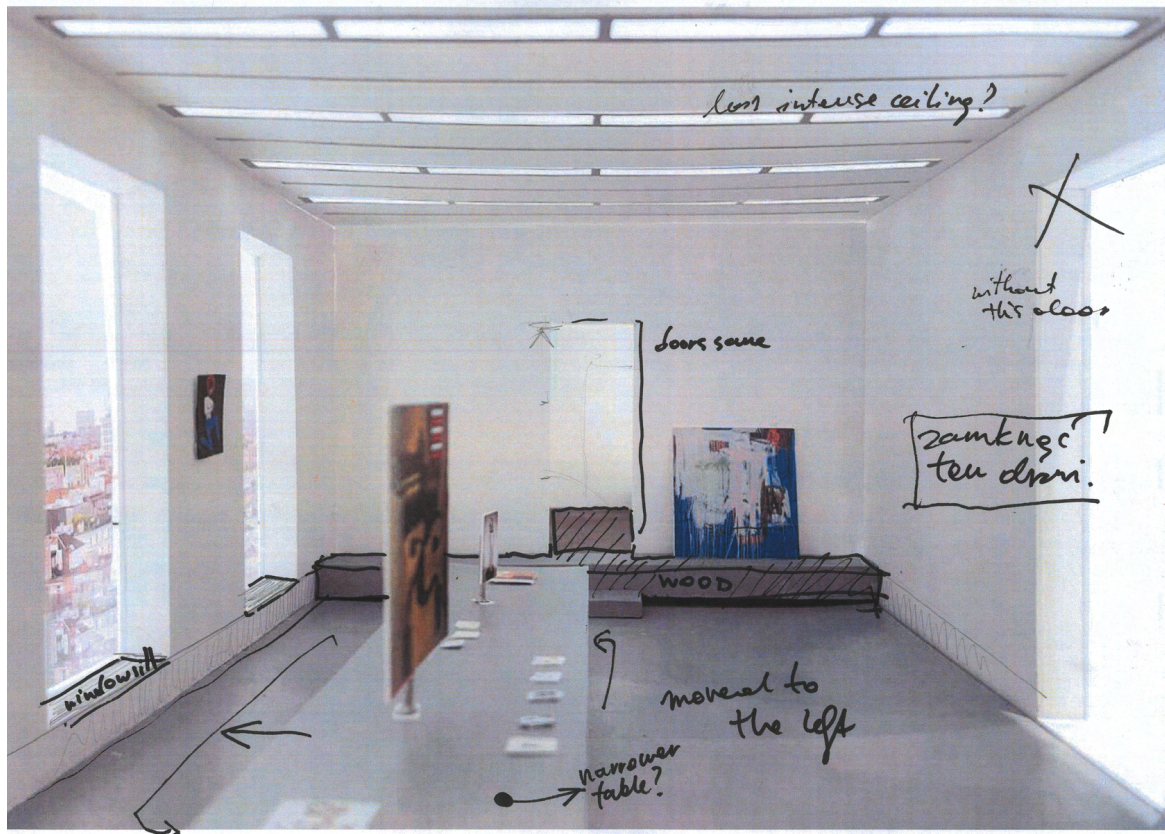 less intense ceiling?
without
this door
doors same
zamknąć
ten drzwi.
WOOD
windowsill
moved to
the left
narrower
table?